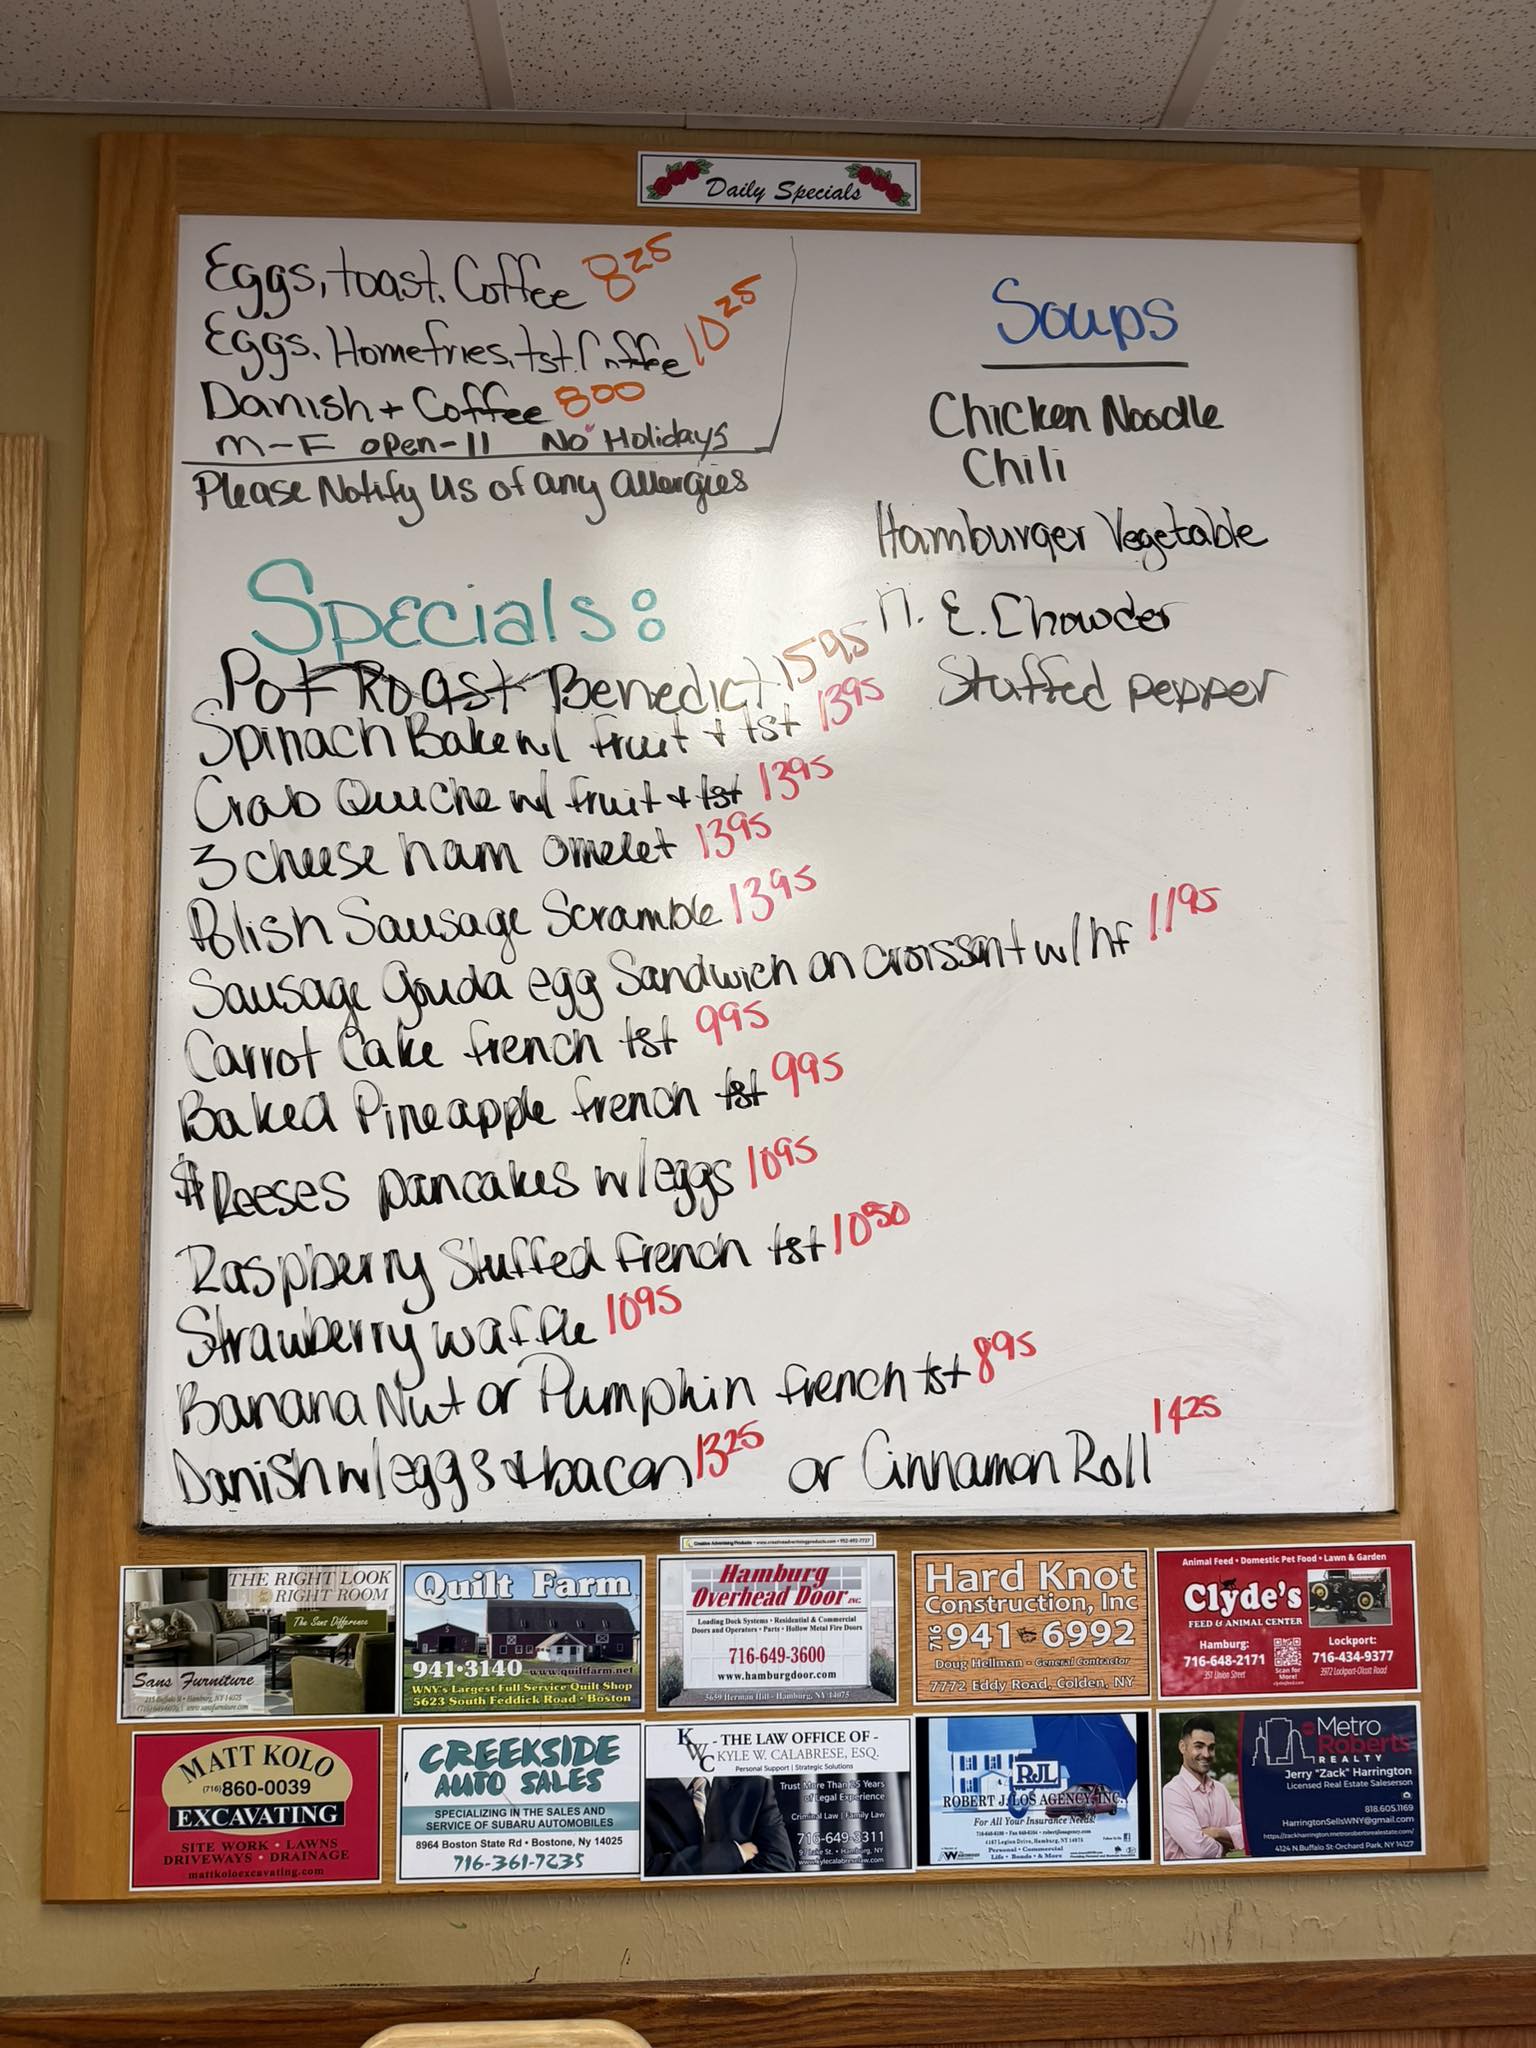 Daily Specials
Eggs, toast. Coffee 8 25
Eggs. Homefries, tst. Coffee 10 25
Danish + Coffee 8 00
M-F open-11 No Holidays
Please Notify Us of any Allergies
Soups
Chicken Noodle
Chili
Hamburger Vegetable
n. E. Chowder
Stuffed pepper
Specials:
Pot Roast Benedict 15 95
Spinach Bake w/ fruit + tst 13 95
Crab Quiche w/ fruit + tst 13 95
3 cheese ham omelet 13 95
Polish Sausage Scramble 13 95
Sausage Gouda egg Sandwich on croissant w/ hf 11 95
Carrot Cake french tst 9 95
Baked Pineapple french tst 9 95
Reeses pancakes w/ eggs 10 95
Raspberry Stuffed french tst 10 50
Strawberry waffle 10 95
Banana Nut or Pumpkin french tst 8 95
Danish w/ eggs + bacon 13 25 or Cinnamon Roll 14 25
THE RIGHT LOOK
RIGHT ROOM
The Sans Difference
Sans Furniture
215 Buffalo St • Hamburg, NY 14075
Quilt Farm
941•3140 www.quiltfarm.net
WNY's Largest Full Service Quilt Shop
5623 South Feddick Road • Boston
Hamburg
Overhead Door INC.
Loading Dock Systems • Residential & Commercial
Doors and Operators • Parts • Hollow Metal Fire Doors
716-649-3600
www.hamburgdoor.com
5659 Herman Hill - Hamburg, NY 14075
Hard Knot
Construction, Inc
716 941-6992
Doug Hellman - General Contractor
7772 Eddy Road, Colden, NY
Animal Feed • Domestic Pet Food • Lawn & Garden
Clyde's
FEED & ANIMAL CENTER
Hamburg:
716-648-2171
351 Union Street
Scan for
More!
Lockport:
716-434-9377
3972 Lockport-Olcott Road
MATT KOLO
(716) 860-0039
EXCAVATING
SITE WORK • LAWNS
DRIVEWAYS • DRAINAGE
mattkoloexcavating.com
CREEKSIDE
AUTO SALES
SPECIALIZING IN THE SALES AND
SERVICE OF SUBARU AUTOMOBILES
8964 Boston State Rd • Bostone, Ny 14025
716-361-7235
KWC
- THE LAW OFFICE OF -
KYLE W. CALABRESE, ESQ.
Personal Support | Strategic Solutions
Trust More Than 25 Years
of Legal Experience
Criminal Law | Family Law
716-649-3311
www.kylecalabreselaw.com
RJL
ROBERT J. LOS AGENCY, INC.
For All Your Insurance Needs!
4167 Legion Drive, Hamburg, NY 14075
Personal • Commercial
Life • Bonds • & More
Metro
Roberts
REALTY
Jerry "Zack" Harrington
Licensed Real Estate Salesperson
818.605.1169
HarringtonSellsWNY@gmail.com
https://zackharrington.metrorobertsrealestate.com/
4124 N.Buffalo St-Orchard Park, NY 14127